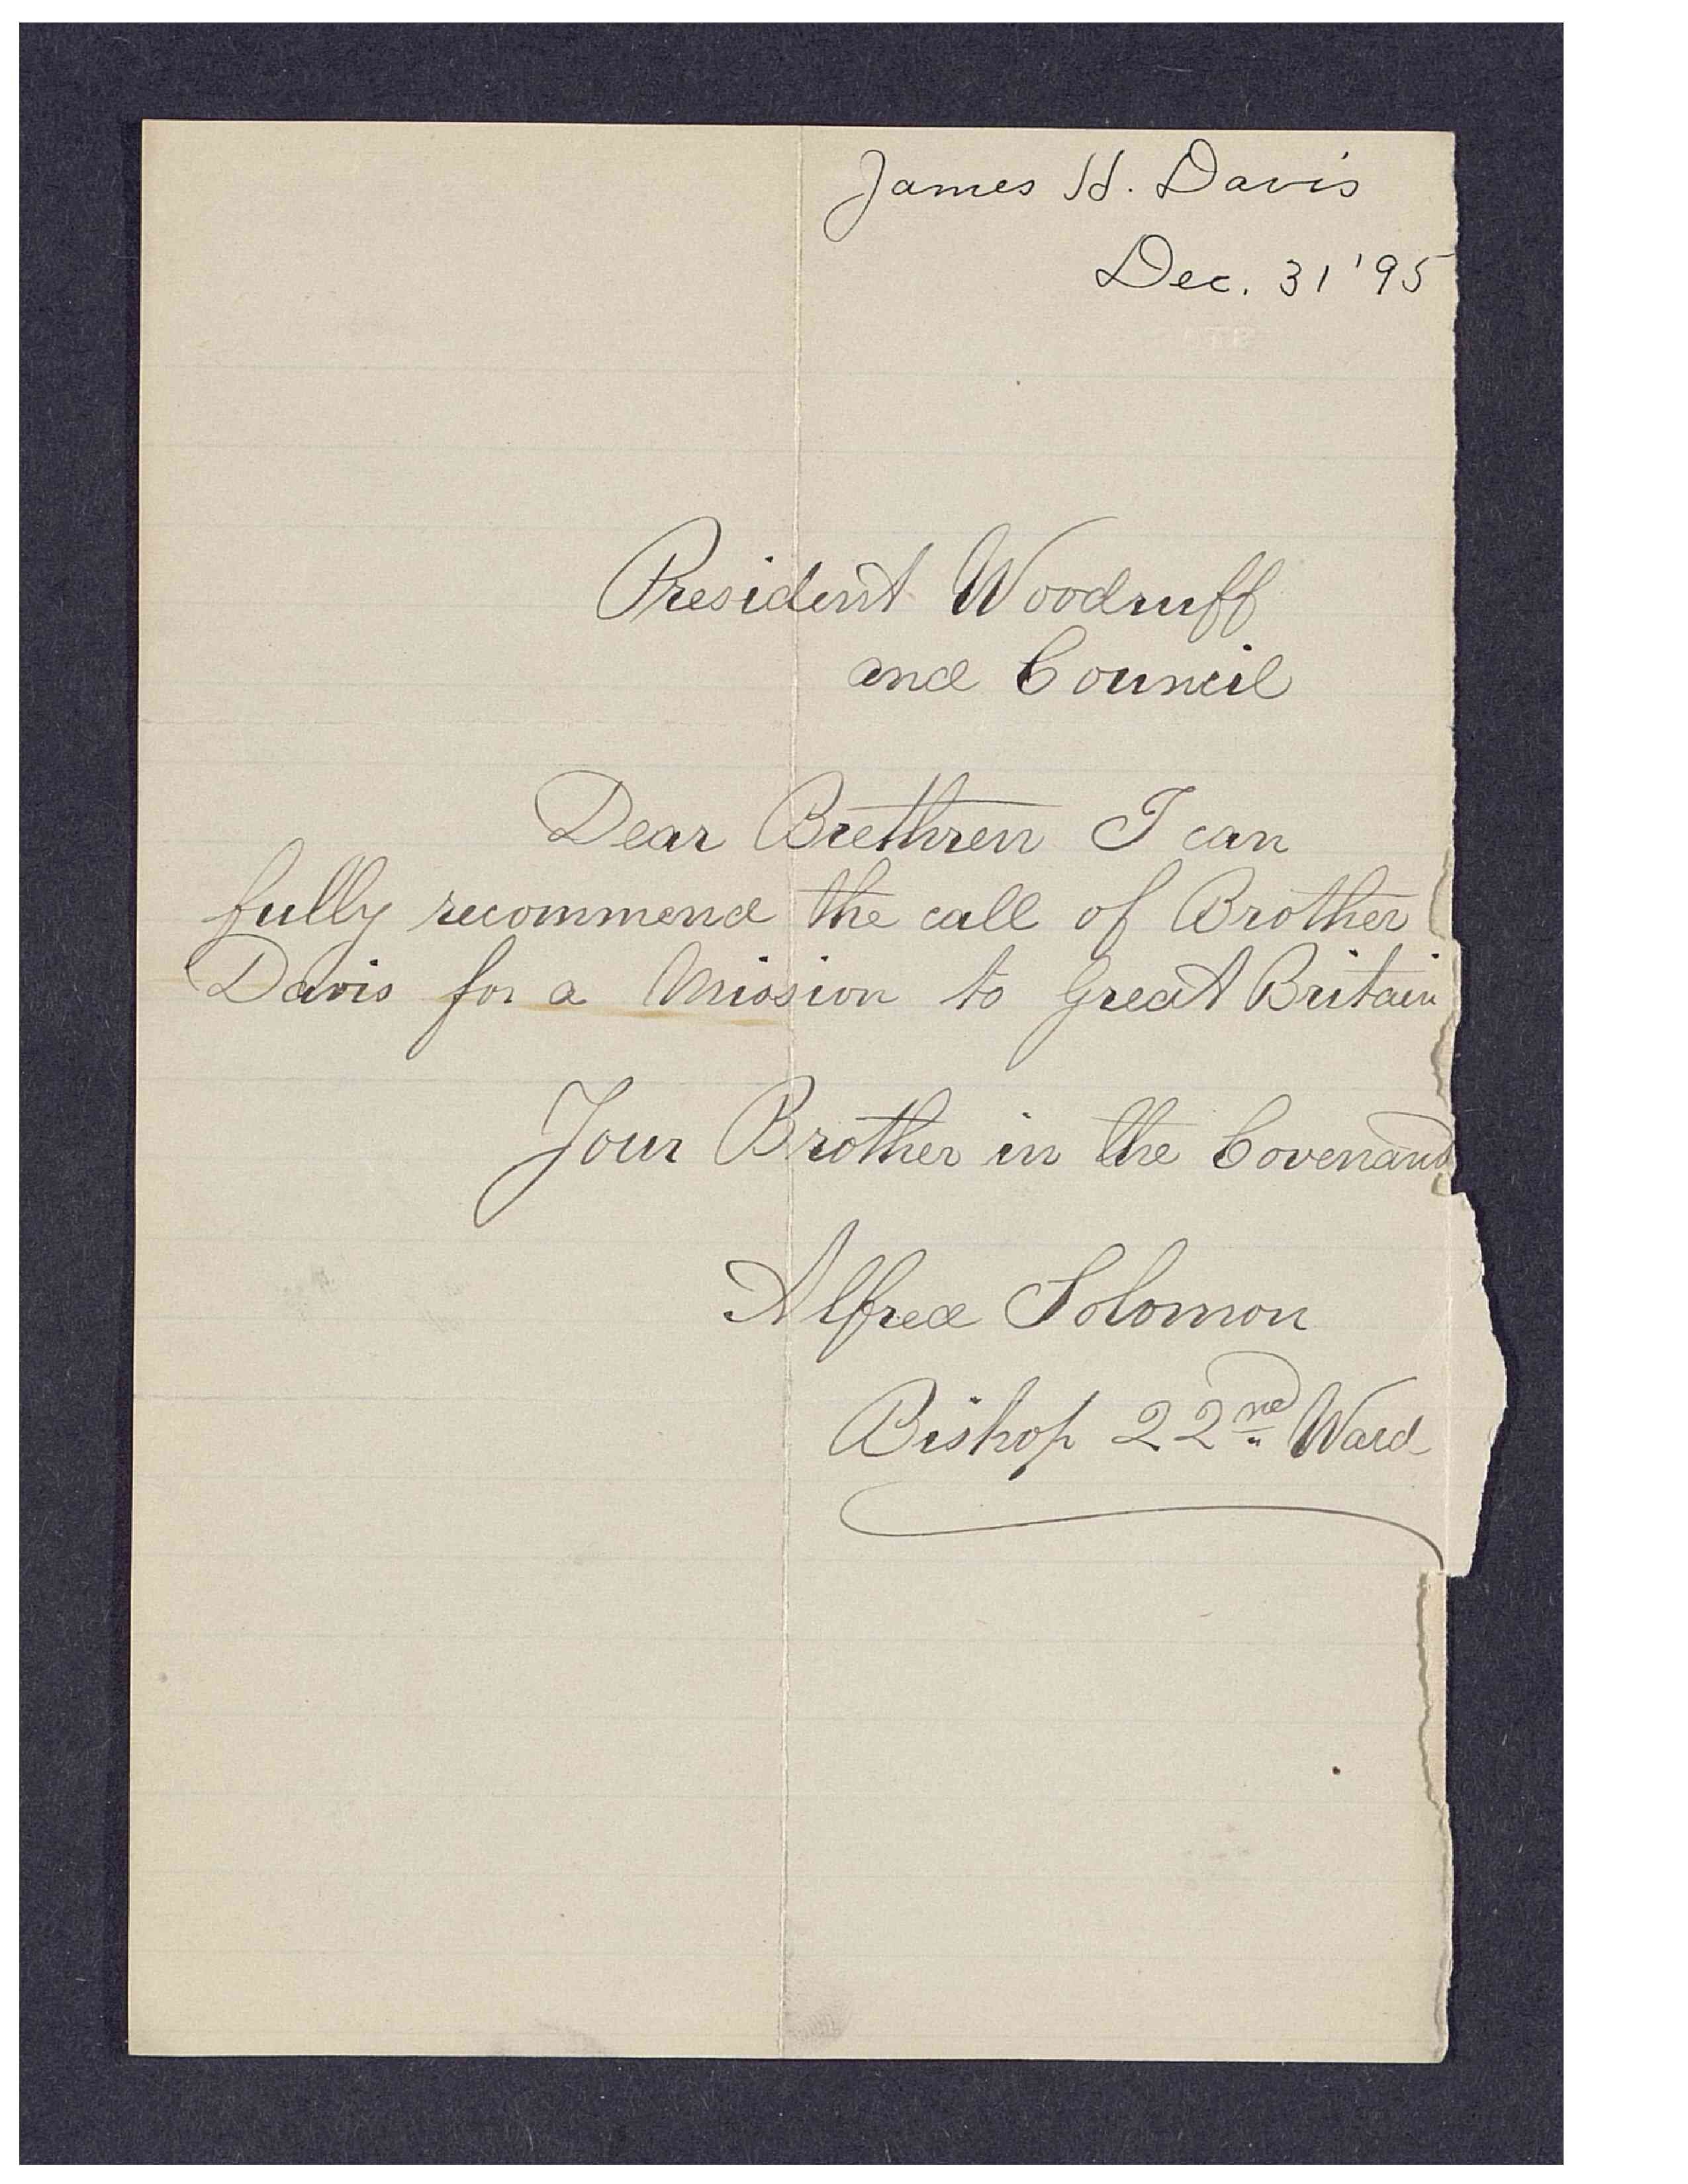 James H. Davis
Dec. 31 '95
President Woodruff
and Council
Dear Brethren I can
fully recommend the call of Brother
Davis for a Mission to Great Britain
Your Brother in the Covenant
Alfred Solomon
Bishop 22nd Ward